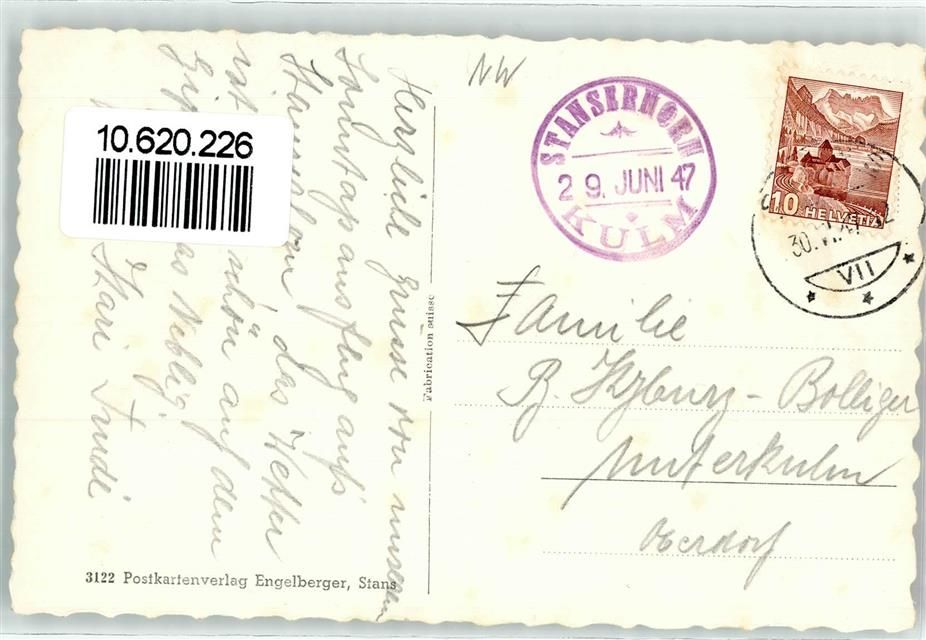 Herzliche Grüsse von unserem
Sonntagsausflug aufs
Stanserhorn das Wetter
ist schön auf dem
Gip Neblig
Hari Trudi
10.620.226
Fabrication suisse
3122 Postkartenverlag Engelberger, Stans
NW
STANSERHORN
29. JUNI 47
KULM
10 HELVETIA
30.VI.
VII
Familie
B. Kyburz-Bolliger
Unterkulm
Oberdorf